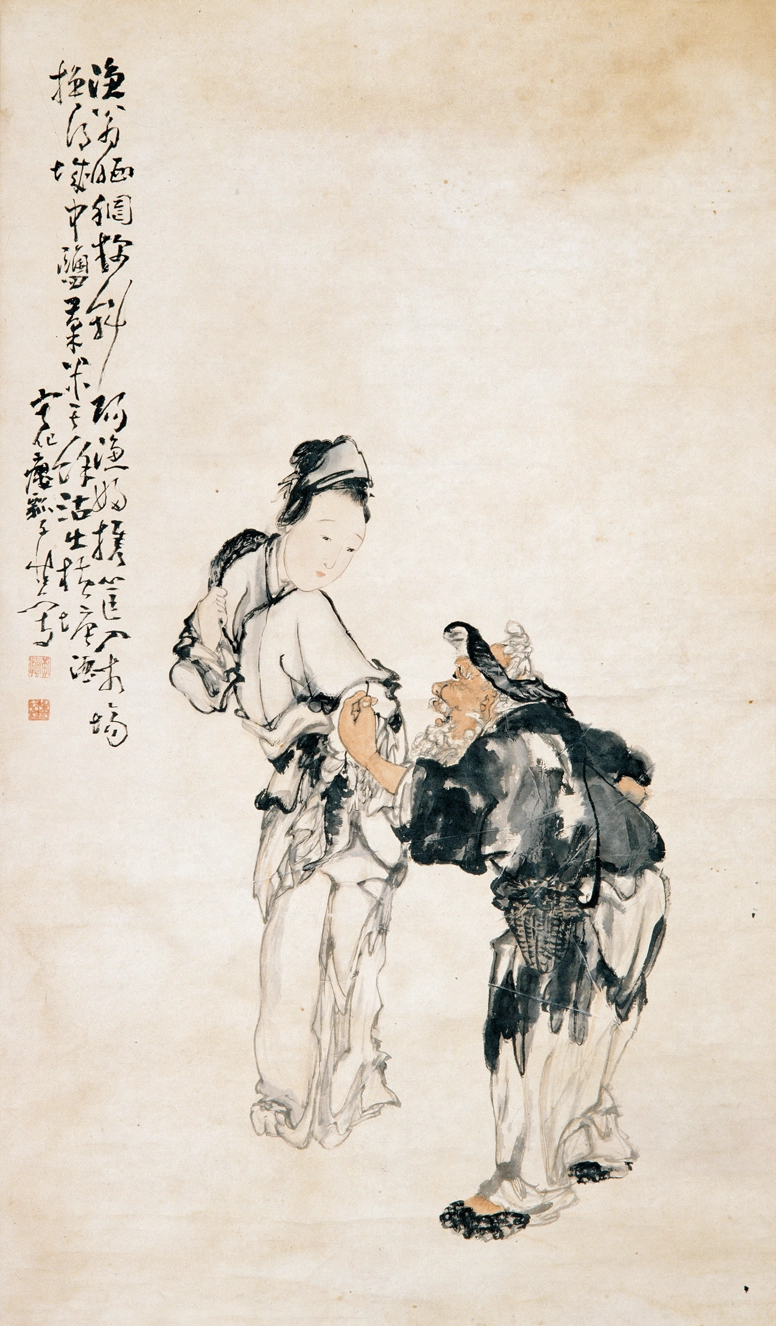 漁翁晒網趁斜陽漁婦攜筐入市場
換得城中鹽菜米其餘沽出橫塘酒
寧化癭瓢子慎寫